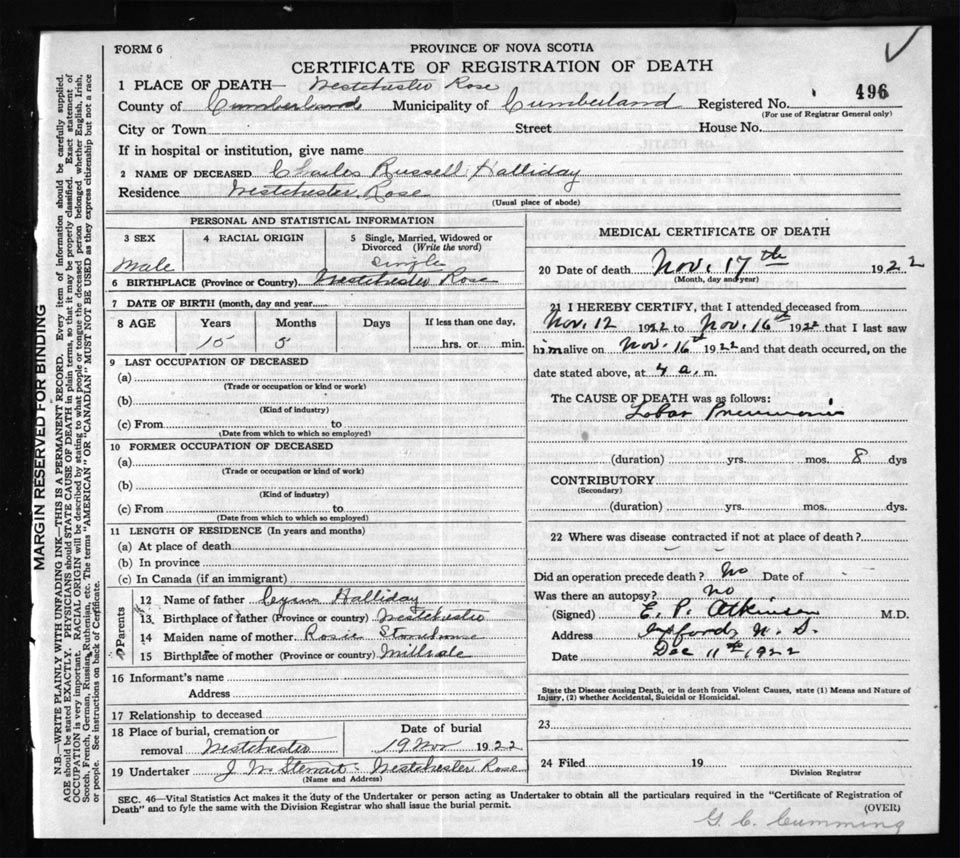 FORM 6
PROVINCE OF NOVA SCOTIA
CERTIFICATE OF REGISTRATION OF DEATH
1 PLACE OF DEATH— Westchester Rose
County of Cumberland Municipality of Cumberland Registered No. 496
(For use of Registrar General only)
City or Town Street House No.
If in hospital or institution, give name
2 NAME OF DECEASED Charles Russell Halliday
Residence Westchester Rose
(Usual place of abode)
PERSONAL AND STATISTICAL INFORMATION
3 SEX 4 RACIAL ORIGIN 5 Single, Married, Widowed or
Divorced (Write the word)
Male Single
6 BIRTHPLACE (Province or Country) Westchester Rose
7 DATE OF BIRTH (month, day and year)
8 AGE Years Months Days If less than one day,
15 5 hrs. or min.
9 LAST OCCUPATION OF DECEASED
(a)
(Trade or occupation or kind or work)
(b)
(Kind of industry)
(c) From to
(Date from which to which so employed)
10 FORMER OCCUPATION OF DECEASED
(a)
(Trade or occupation or kind of work)
(b)
(Kind of industry)
(c) From to
(Date from which to which so employed)
11 LENGTH OF RESIDENCE (In years and months)
(a) At place of death
(b) In province
(c) In Canada (if an immigrant)
Parents
12 Name of father Cyrus Halliday
13 Birthplace of father (Province or country) Westchester
14 Maiden name of mother Rosie Stonehouse
15 Birthplace of mother (Province or country) Millvale
16 Informant's name
Address
17 Relationship to deceased
18 Place of burial, cremation or Date of burial
removal Westchester 19 Nov 1922
19 Undertaker J W Stewart - Westchester Rose
(Name and Address)
MEDICAL CERTIFICATE OF DEATH
20 Date of death Nov. 17th 1922
(Month, day and year)
21 I HEREBY CERTIFY, that I attended deceased from
Nov. 12 1922 to Nov. 16th 1922 that I last saw
him alive on Nov. 16th 1922 and that death occurred, on the
date stated above, at 4 a. m.
The CAUSE OF DEATH was as follows:
Lobar Pneumonia
(duration) yrs. mos. 8 dys
CONTRIBUTORY
(Secondary)
(duration) yrs. mos. dys.
22 Where was disease contracted if not at place of death?
Did an operation precede death? No Date of
Was there an autopsy? No
(Signed) E. P. Atkinson M.D.
Address Oxford, N. S.
Date Dec 11th 1922
State the Disease causing Death, or in death from Violent Causes, state (1) Means and Nature of
Injury, (2) whether Accidental, Suicidal or Homicidal.
23
24 Filed 19
Division Registrar
SEC. 46—Vital Statistics Act makes it the duty of the Undertaker or person acting as Undertaker to obtain all the particulars required in the "Certificate of Registration of
Death" and to fyle the same with the Division Registrar who shall issue the burial permit.
(OVER)
G. C. Cumming
MARGIN RESERVED FOR BINDING
N.B.—WRITE PLAINLY WITH UNFADING INK—THIS IS A PERMANENT RECORD. Every item of information should be carefully supplied.
AGE should be stated EXACTLY. PHYSICIANS should STATE CAUSE OF DEATH in plain terms, so that it may be properly classified. Exact statement of
OCCUPATION is very important. RACIAL ORIGIN will be described by stating to what people or tongue the deceased person belonged whether English, Irish,
Scotch, French, German, Russian, Ruthenian, etc. The terms "AMERICAN" OR "CANADIAN" MUST NOT BE USED as they express citizenship but not a race
or people. See instructions on back of Certificate.